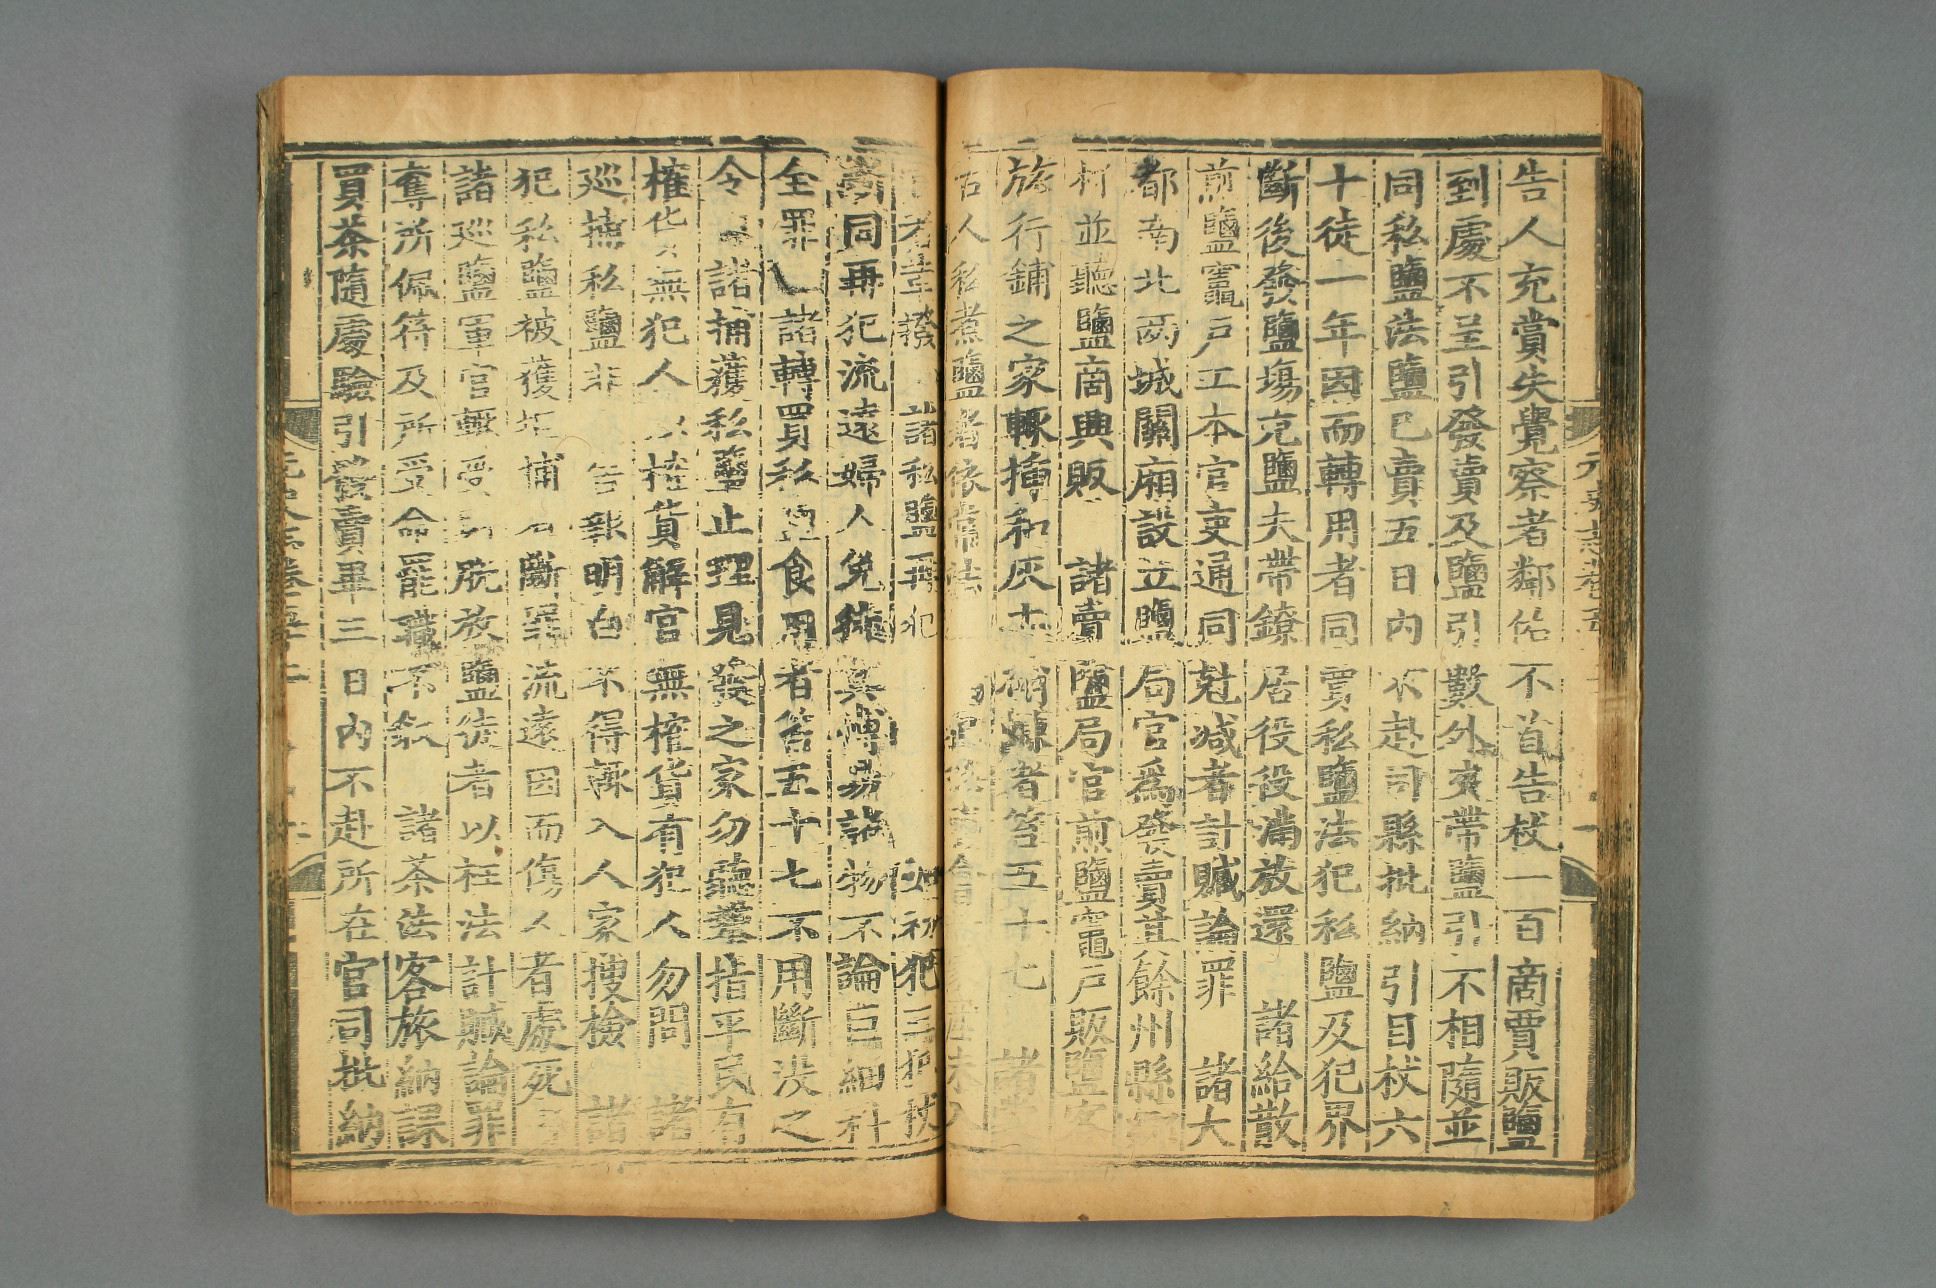 告人充賞失覺察者鄰佑不首告杖一百商賈販鹽
到處不呈引發賣及鹽引數外夾帶鹽引不相隨並
同私鹽法鹽已賣五日內不赴司縣批納引目杖六
十徒一年因而轉用者同賣私鹽法犯私鹽及犯界
斷後發鹽場充鹽夫帶鐐居役役滿放還 諸給散
煎鹽竈戶工本官吏通同尅减者計贓論罪 諸大
都南北兩城關廂設立鹽局官爲發賣其餘州縣鄉
村並聽鹽商興販 諸賣鹽局官煎鹽竈戶販鹽客
旅行鋪之家輒揷和灰土硝鹻者笞五十七 諸
古人私煮鹽者依常法
犯 諸私鹽再犯 如初犯三犯杖
斷同再犯流遠婦人免徒其博易諸物不論巨細科
全罪 諸轉買私鹽食用者笞五十七不用斷沒之
令 諸捕獲私鹽止理見發之家勿聽攀指平民有
榷貨無犯人以榷貨解官無榷貨有犯人勿問 諸
巡捕私鹽非 告報明白不得輒入人家搜檢 諸
犯私鹽被獲拒捕 斷罪流遠因而傷人者處死
諸巡鹽軍官輒受 脫放鹽徒者以枉法計贓論罪
奪所佩符及所受命罷職不敘 諸茶法客旅納課
買茶隨處驗引發賣畢三日內不赴所在官司批納
元史志卷五十二